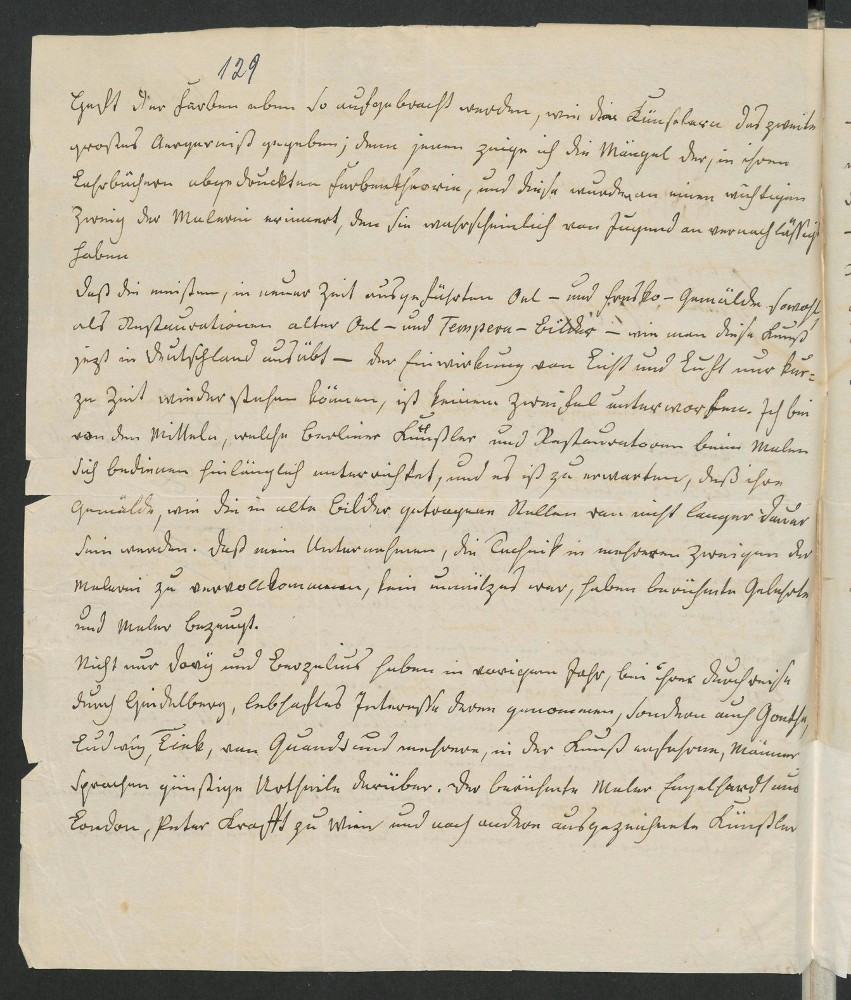 129
der Farben eben so aufgebracht werden, wie den Künstlern das zweite
großes Aergerniß gegeben; denn jenen zeige ich die Mängel der, in ihren
Lehrbüchern abgedruckten Farbentheorie, und diese wurden an einen wichtigen
Zweig der Malerei erinnert, den sie wahrscheinlich von Jugend an vernachlässigt
haben
Daß die meisten, in neuer Zeit ausgeführten Oel- und Fresko-Gemälde sowohl
als Restaurationen alter Oel- und Tempera-Bilder – wie man diese Kunst
jezt in Deutschland ausübt – der Einwirkung von Licht und Luft nur kur=
ze Zeit wiederstehen können, ist keinem Zweifel unterworfen. Ich bin
von den Mitteln, welche Berliner Künstler und Restauratoren beim Malen
sich bedienen hinlänglich unterrichtet, und es ist zu erwarten, daß ihre
Gemälde, wie die in alte Bilder getragene Stellen von nicht langer Dauer
sein werden. Daß mein Unternehmen, die Technik in mehreren Zweigen der
Malerei zu vervollkommenen, kein unnützes war, haben berühmte Gelehrte
und Maler bezeugt.
Nicht nur Davÿ und Berzelius haben in vorigem Jahr, bei ihrer Durchreise
durch Heidelberg, lebhaftes Interesse daran genommen, sondern auch Goethe,
Ludwig, Tiek, von Quandt und mehrere, in der Kunst erfahrene, Männer
sprachen günstige Urtheile darüber. Der berühmte Maler Engelhardt aus
London, Peter Krafft zu Wien und noch andere ausgezeichnete Künstler